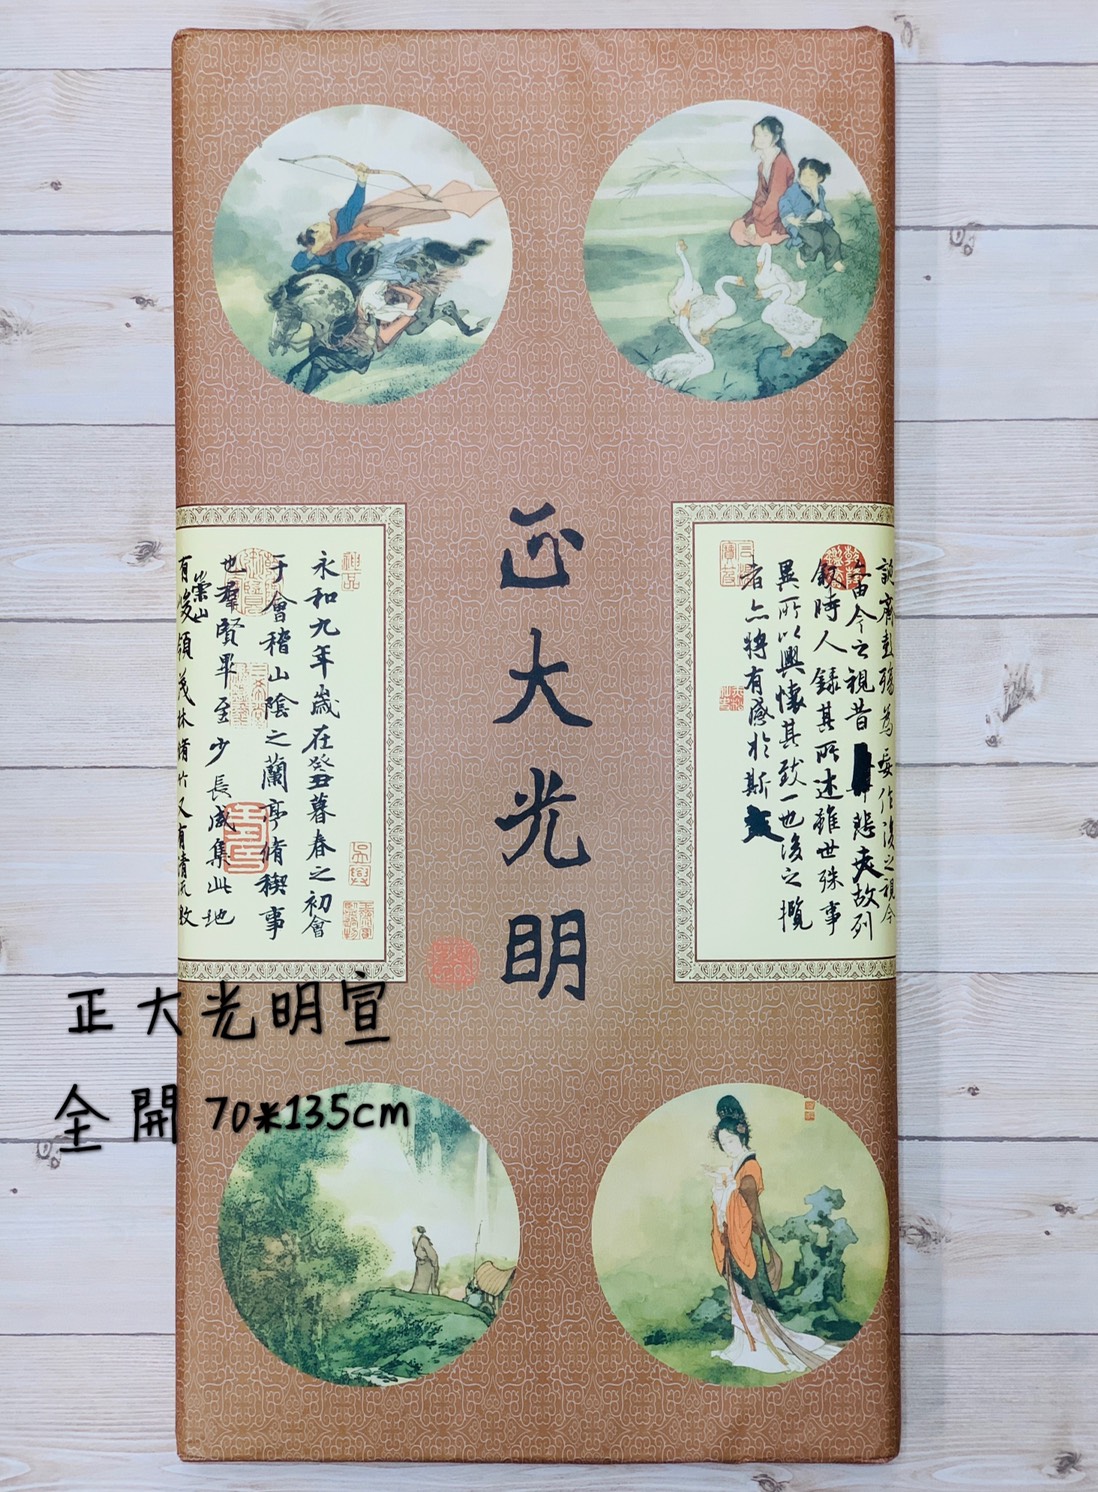 正大光明
永和九年歲在癸丑暮春之初會
于會稽山陰之蘭亭脩稧事
也羣賢畢至少長咸集此地
有崇山峻領茂林脩竹又有清流
由今之視昔
悲夫故列
敘時人錄其所述雖世殊事
異所以興懷其致一也後之攬
者亦將有感於斯
神品
正大光明宣
全開 70*135cm